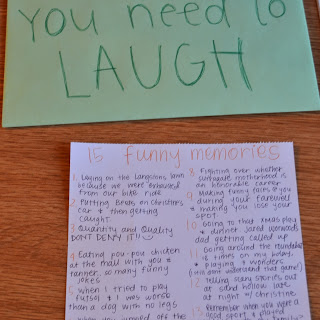 you need to
LAUGH
15 funny memories
1. Laying on the Langstons lawn
because we were exhausted
from our bike ride
2. Putting Beebs on Christmas
car & then getting
caught.
3. Quantity and Quality
DON'T DENY IT!!
4. Eating pou-pou chicken
at the mall with you &
tanner, so many funny
jokes
when I tried to play
futsal & I was worse
than a dog with no legs
8. Fighting over whether
surrogate motherhood is
an honorable career
9. Making funny faces @ you
during your farewell
& making you lose your
spot.
10. Going to that xmas play
& dad getting called up
11. Going around the roundabout
times on my bday,
& playing 7 wonders
understand that game!)
12. Telling scary stories out
at sand hollow late
at night w/ christine.
13. Remember when we